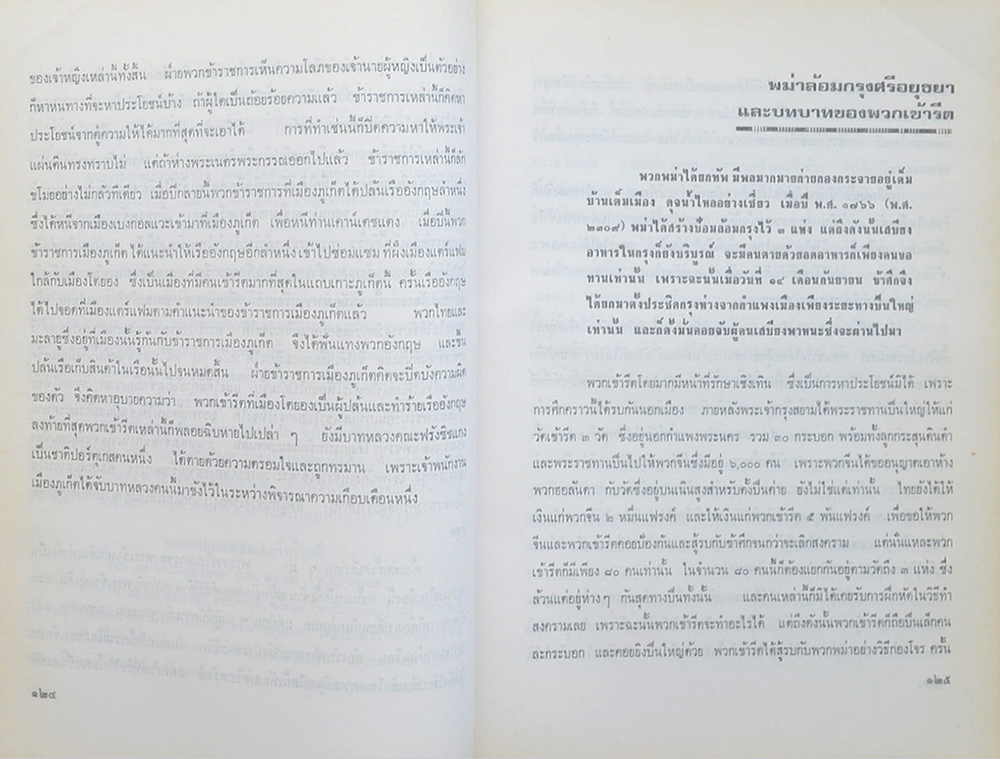 ของเจ้าหญิงเหล่านี้ทั้งสิ้น ฝ่ายพวกข้าราชการเห็นความโลภของเจ้านายผู้หญิงเป็นตัวอย่าง
ก็หาหนทางที่จะหาประโยชน์บ้าง ถ้าผู้ใดเป็นถ้อยร้อยความแล้ว ข้าราชการเหล่านี้ก็คิดหา
ประโยชน์จากคู่ความให้ได้มากที่สุดที่จะเอาได้ การที่ทำเช่นนี้ก็ปิดความหาให้พระเจ้า
แผ่นดินทรงทราบไม่ แต่ถ้าห่างพระเนตรพระกรรณออกไปแล้ว ข้าราชการเหล่านี้ก็ลัก
ขโมยอย่างไม่กลัวทีเดียว เมื่อปีกลายนี้พวกข้าราชการที่เมืองภูเก็ตได้ปล้นเรืออังกฤษลำหนึ่ง
ซึ่งได้หนีจากเมืองเบงกอลแวะเข้ามาที่เมืองภูเก็ต เพื่อหนีท่านเคาน์เตชแดง เมื่อปีนี้พวก
ข้าราชการเมืองภูเก็ตได้แนะนำให้เรืออังกฤษอีกลำหนึ่งเข้าไปซ่อมแซมที่ฝั่งเมืองแตร์แฟม
ใกล้กับเมืองโตยอง ซึ่งเป็นเมืองที่มีคนเข้ารีตมากที่สุดในแถบเกาะภูเก็ตนี้ ครั้นเรืออังกฤษ
ได้ไปจอดที่เมืองแตร์แฟมตามคำแนะนำของข้าราชการเมืองภูเก็ตแล้ว พวกไทยและ
มะลายูซึ่งอยู่ที่เมืองนั้นรู้กันกับข้าราชการเมืองภูเก็ต จึงได้ฟันแทงพวกอังกฤษ และขึ้น
ปล้นเรือเก็บสินค้าในเรือนั้นไปจนหมดสิ้น ฝ่ายข้าราชการเมืองภูเก็ตคิดจะปิดบังความผิด
ของตัว จึงคิดหาอุบายความว่า พวกเข้ารีตที่เมืองโตยองเป็นผู้ปล้นและทำร้ายเรืออังกฤษ
ลงท้ายที่สุดพวกเข้ารีตเหล่านี้ก็พลอยฉิบหายไปเปล่า ๆ ยังมีบาทหลวงคณะฟรังซิซแกง
เป็นชาติปอร์ตุเกสคนหนึ่ง ได้ตายด้วยความตรอมใจและถูกทรมาน เพราะเจ้าพนักงาน
เมืองภูเก็ตได้จับบาทหลวงคนนี้มาขังไว้ในระหว่างพิจารณาความเกือบเดือนหนึ่ง
๑๒๔
พม่าล้อมกรุงศรีอยุธยา
และบทบาทของพวกเข้ารีต
พวกพม่าได้ยกทัพ มีพลมากมายถ่ายกองกระจายอยู่เต็ม
บ้านเต็มเมือง ดุจน้ำไหลอย่างเชี่ยว เมื่อปี พ.ศ. ๑๗๖๖ (พ.ศ.
๒๓๐๙) พม่าได้สร้างป้อมล้อมกรุงไว้ ๓ แห่ง แต่ถึงดังนั้นเสบียง
อาหารในกรุงก็ยังบริบูรณ์ จะมีคนตายด้วยอดอาหารก็เพียงคนขอ
ทานเท่านั้น เพราะฉะนั้นเมื่อวันที่ ๑๔ เดือนกันยายน ข้าศึกจึง
ได้ยกมาตั้งประชิดกรุงห่างจากกำแพงเมืองเพียงระยะทางปืนใหญ่
เท่านั้น และก็ตั้งมั่นคอยจับผู้คนเสบียงพาหนะซึ่งจะผ่านไปมา
พวกเข้ารีตโดยมากมีหน้าที่รักษาเชิงเทิน ซึ่งเป็นการหาประโยชน์มิได้ เพราะ
การศึกคราวนี้ได้รบกันนอกเมือง ภายหลังพระเจ้ากรุงสยามได้พระราชทานปืนใหญ่ให้แก่
วัดเข้ารีต ๓ วัด ซึ่งอยู่นอกกำแพงพระนคร รวม ๓๐ กระบอก พร้อมทั้งลูกกระสุนดินดำ
และพระราชทานปืนไปให้พวกจีนซึ่งมีอยู่ ๖,๐๐๐ คน เพราะพวกจีนได้ขออนุญาตเอาห้าง
พวกฮอลันดา กับวัดซึ่งอยู่บนเนินสูงสำหรับตั้งปืนค่าย ยังไม่ใช่แต่เท่านั้น ไทยยังได้ให้
เงินแก่พวกจีน ๒ หมื่นแฟรงค์ และให้เงินแก่พวกเข้ารีต ๕ พันแฟรงค์ เพื่อขอให้พวก
จีนและพวกเข้ารีตคอยป้องกันและสู้รบกับข้าศึกจนกว่าจะเลิกสงคราม แต่นั่นแหละพวก
เข้ารีตก็มีเพียง ๘๐ คนเท่านั้น ในจำนวน ๘๐ คนนี้ก็ต้องแยกกันอยู่ตามวัดถึง ๓ แห่ง ซึ่ง
ล้วนแต่อยู่ห่างๆ กันสุดทางปืนทั้งนั้น และคนเหล่านี้ก็มิได้เคยรับการฝึกหัดในวิธีทำ
สงครามเลย เพราะฉะนั้นพวกเข้ารีตจะทำอะไรได้ แต่ถึงดังนั้นพวกเข้ารีตก็ถือปืนเล็กคน
ละกระบอก และคอยยิงปืนใหญ่ด้วย พวกเข้ารีตได้สู้รบกับพวกพม่าอย่างวิธีกองโจร ครั้น
๑๒๕